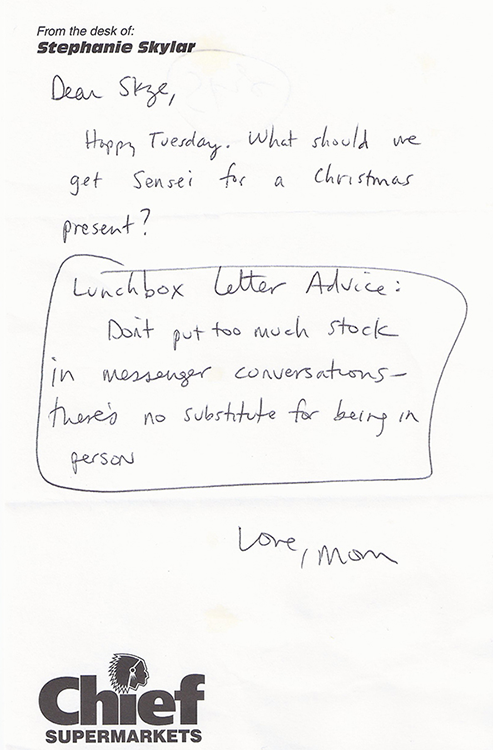 From the desk of:
Stephanie Skylar
Dear Skze,
Happy Tuesday. What should we
get Sensei for a Christmas
present?
Lunchbox Letter Advice:
Don't put too much stock
in messenger conversations—
there's no substitute for being in
person
Love, Mom
Chief
SUPERMARKETS